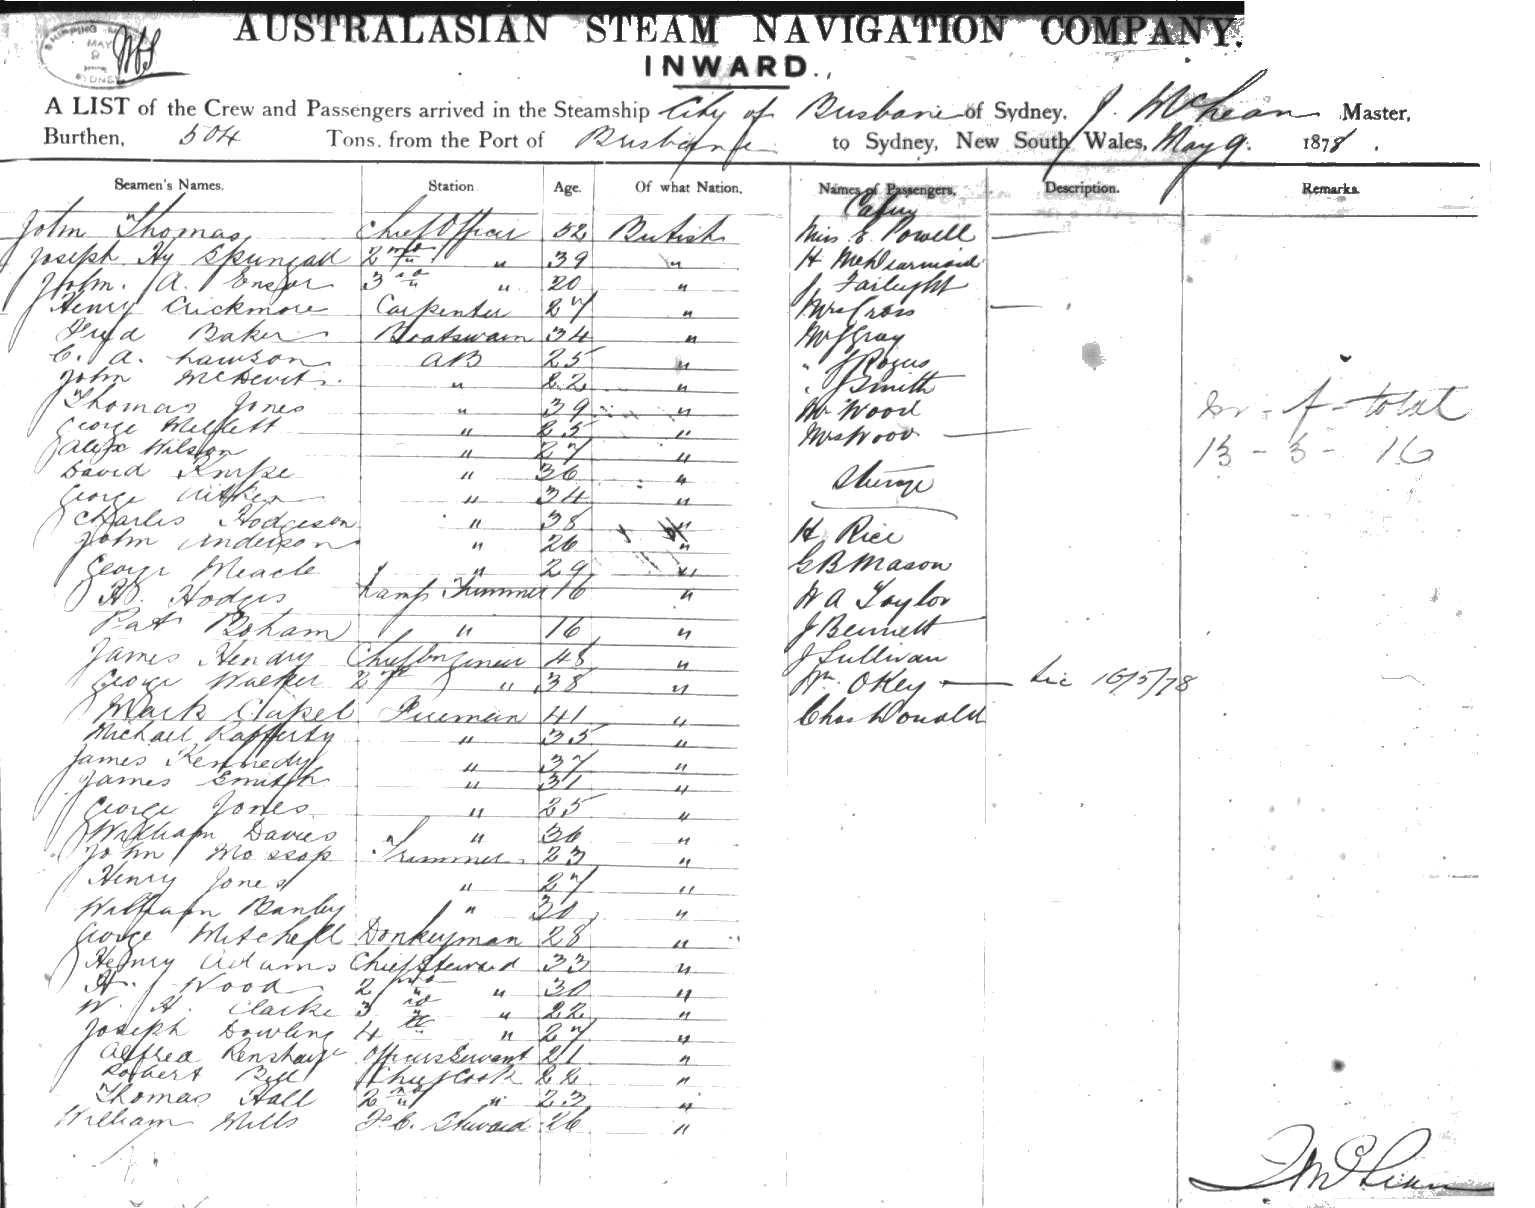 SHIPPING
MAY
9
SYDNEY
AUSTRALASIAN STEAM NAVIGATION COMPANY.
INWARD.
A LIST of the Crew and Passengers arrived in the Steamship City of Brisbane of Sydney, J. McLean Master,
Burthen, 504 Tons. from the Port of Brisbane to Sydney, New South Wales, May 9. 1878.
Seamen's Names. Station Age. Of what Nation. Names of Passengers. Description. Remarks
John Thomas Chief Officer 52 British
Joseph Hy 2nd " 39 "
John. A. Ensor 3rd " 20 "
Henry Crickmore Carpenter 27 "
Fred Baker Boatswain 34 "
C. A. Lawson AB 25 "
John McDevit " 22 "
Thomas Jones " 39 "
George Mellett " 25 "
Alex Wilson " 27 "
David " 36 "
George Aitken " 34 "
Charles Hodgeson " 38 "
John Anderson " 26 "
George " 29 "
H. Hodges Lamp Trimmer 16 "
Pat Boham " 16 "
James Hendry Chief Engineer 48 "
George Walker 2nd " 38 "
Mark Clapel Fireman 41 "
Michael Rafferty " 35 "
James Kennedy " 37 "
James Smith " 31 "
George Jones " 25 "
William Davies " 36 "
John Mossop Trimmer 23 "
Henry Jones " 27 "
William Banley " 30 "
George Mitchell Donkeyman 28 "
Henry Adams Chief Steward 33 "
H. Wood 2nd " 30 "
W. H. Clarke 3rd " 22 "
Joseph Dowling 4th " 27 "
Alfred Renshaw Officers Servant 21 "
Robert Bell Chief Cook 22 "
Thomas Hall 2nd " 23 "
William Mills F. C. Steward 26 "
Cabin
Miss E. Powell
H McDearmid
J Fairlight
Mrs Cross
Mr J Gray
" J Rogers
" J Smith
Mr Wood
Mrs Wood
Steerage
H Rice
G B Mason
W A Taylor
J Bennett
J Sullivan
Wm OKey
Chas Donald
16/5/78
f - total
13 - 3 - 16
J McLean